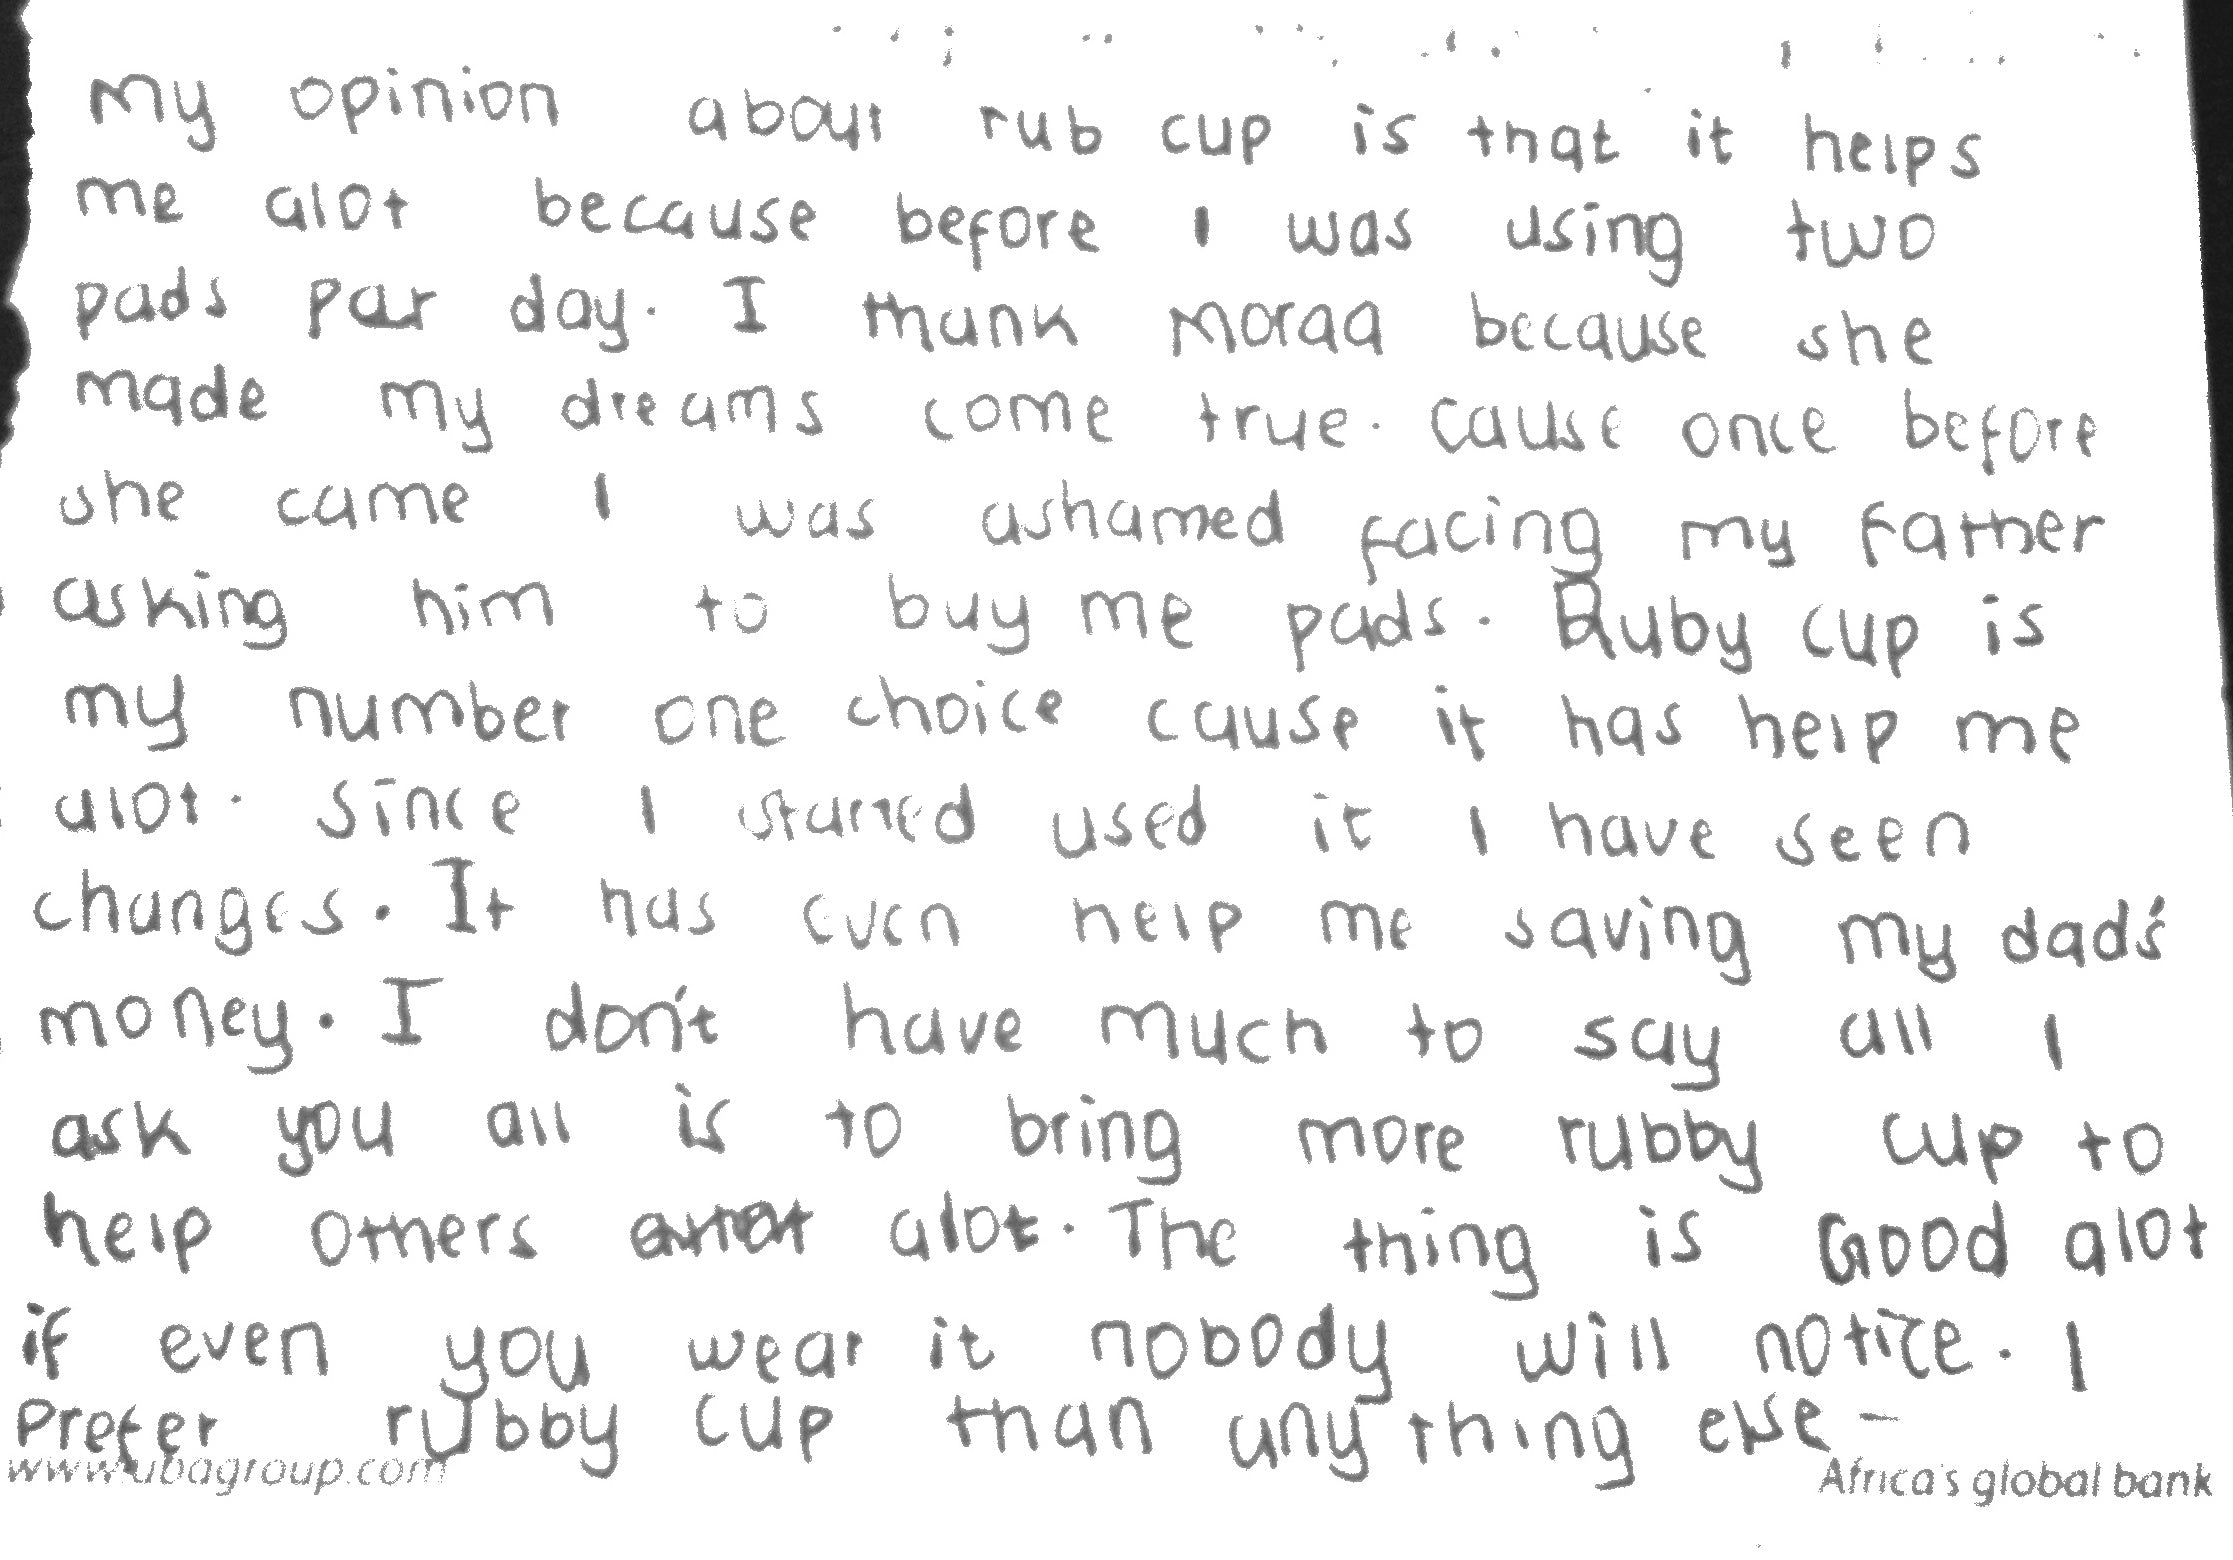 My opinion about rub cup is that it helps
me alot because before I was using two
pads par day. I thank Moraa because she
made my dreams come true. Cause once before
she came I was ashamed facing my father
asking him to buy me pads. Ruby cup is
my number one choice cause it has help me
alot. Since I started used it I have seen
changes. It has even help me saving my dad's
money. I don't have much to say all I
ask you all is to bring more rubby cup to
help others alot. The thing is Good alot
if even you wear it nobody will notice. I
Prefer rubby cup than any thing else -
www.ubagroup.com Africa's global bank